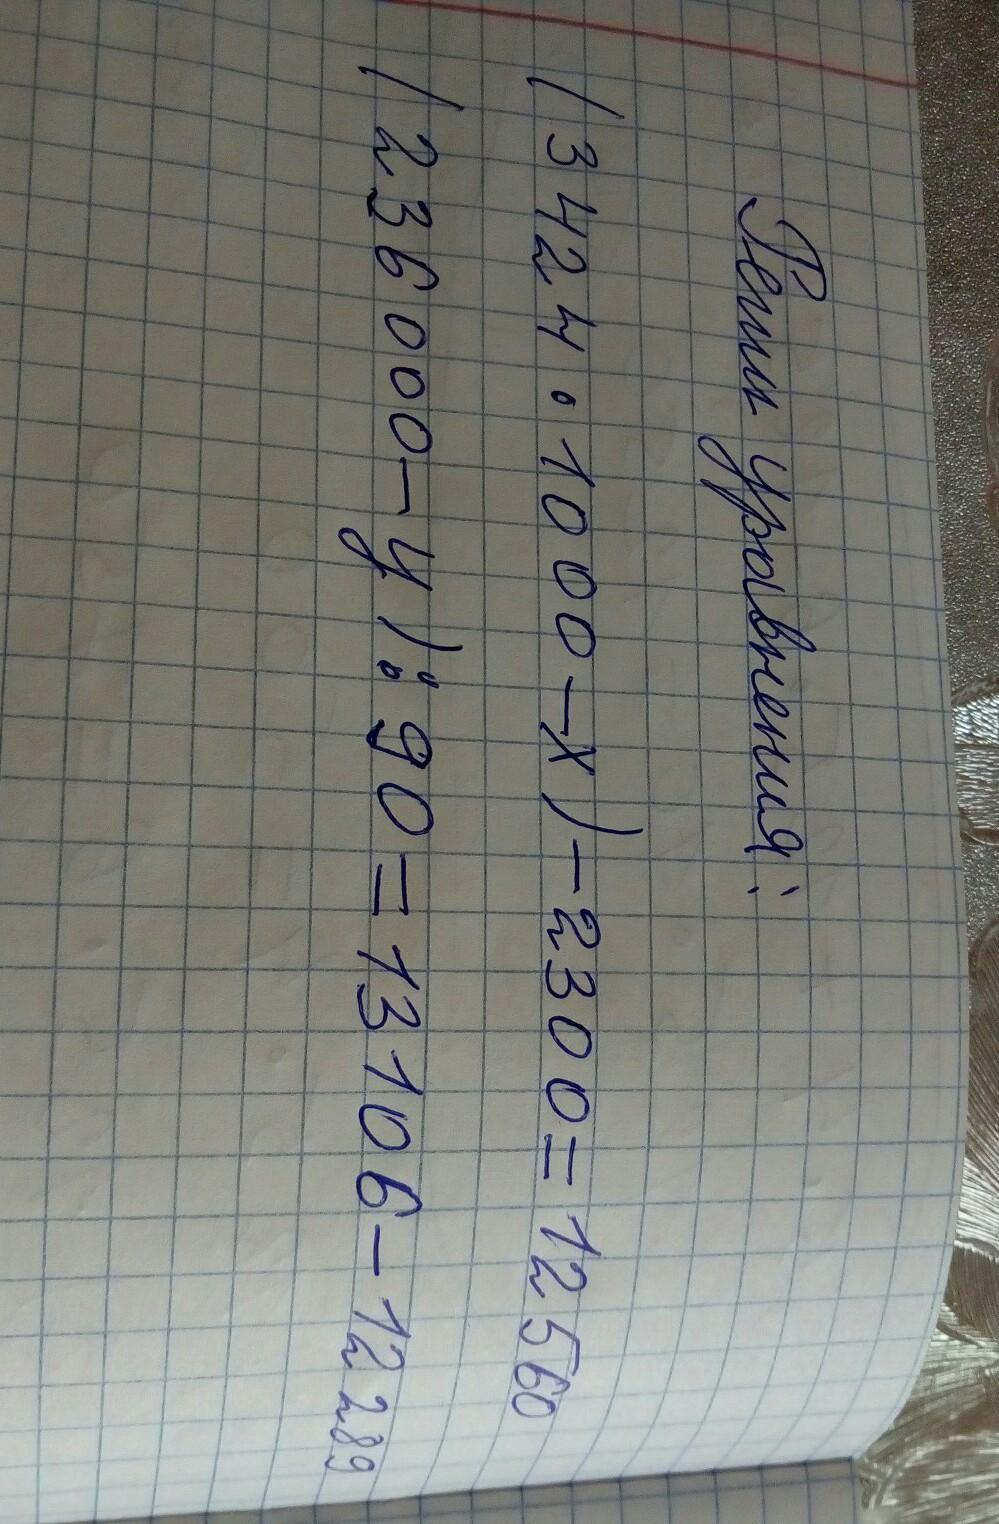 Реши уравнения:
(3424 · 1000 - x) - 2300 = 12560
(236000 - y) : 90 = 13106 - 12289